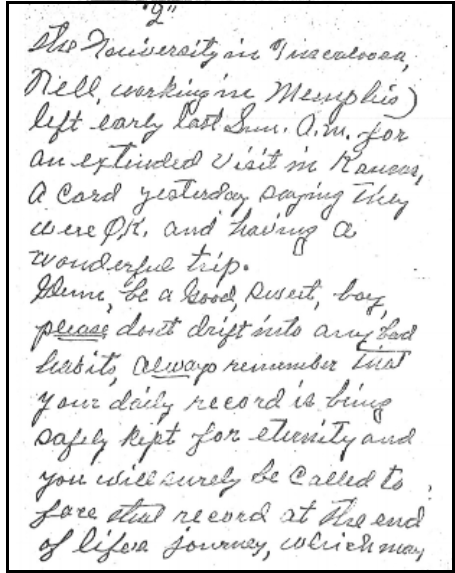 "2"
the University in Tuscaloosa,
Nell, working in Memphis)
left early last Sun. A.M. for
an extended visit in Kansas,
a card yesterday saying they
were O.K. and having a
wonderful trip.
be a good, sweet, boy,
please dont drift into any bad
habits, always remember that
your daily record is being
safely kept for eternity and
you will surely be called to
face that record at the end
of lifes journey, which may